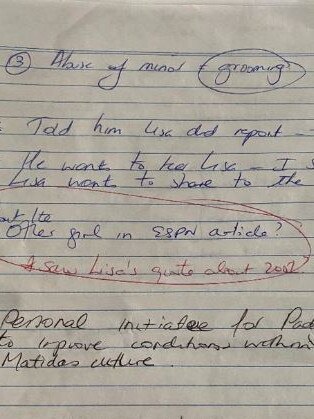 ③ Abuse of minor + grooming?
Told him Lisa did report -
He wants to her Lisa - I s
Lisa want to share to the
out Ite
Other girl in ESPN article?
I saw Lisa's quote about 2001
Personal initiative for Pad
to improve conditions within
Matildas culture.